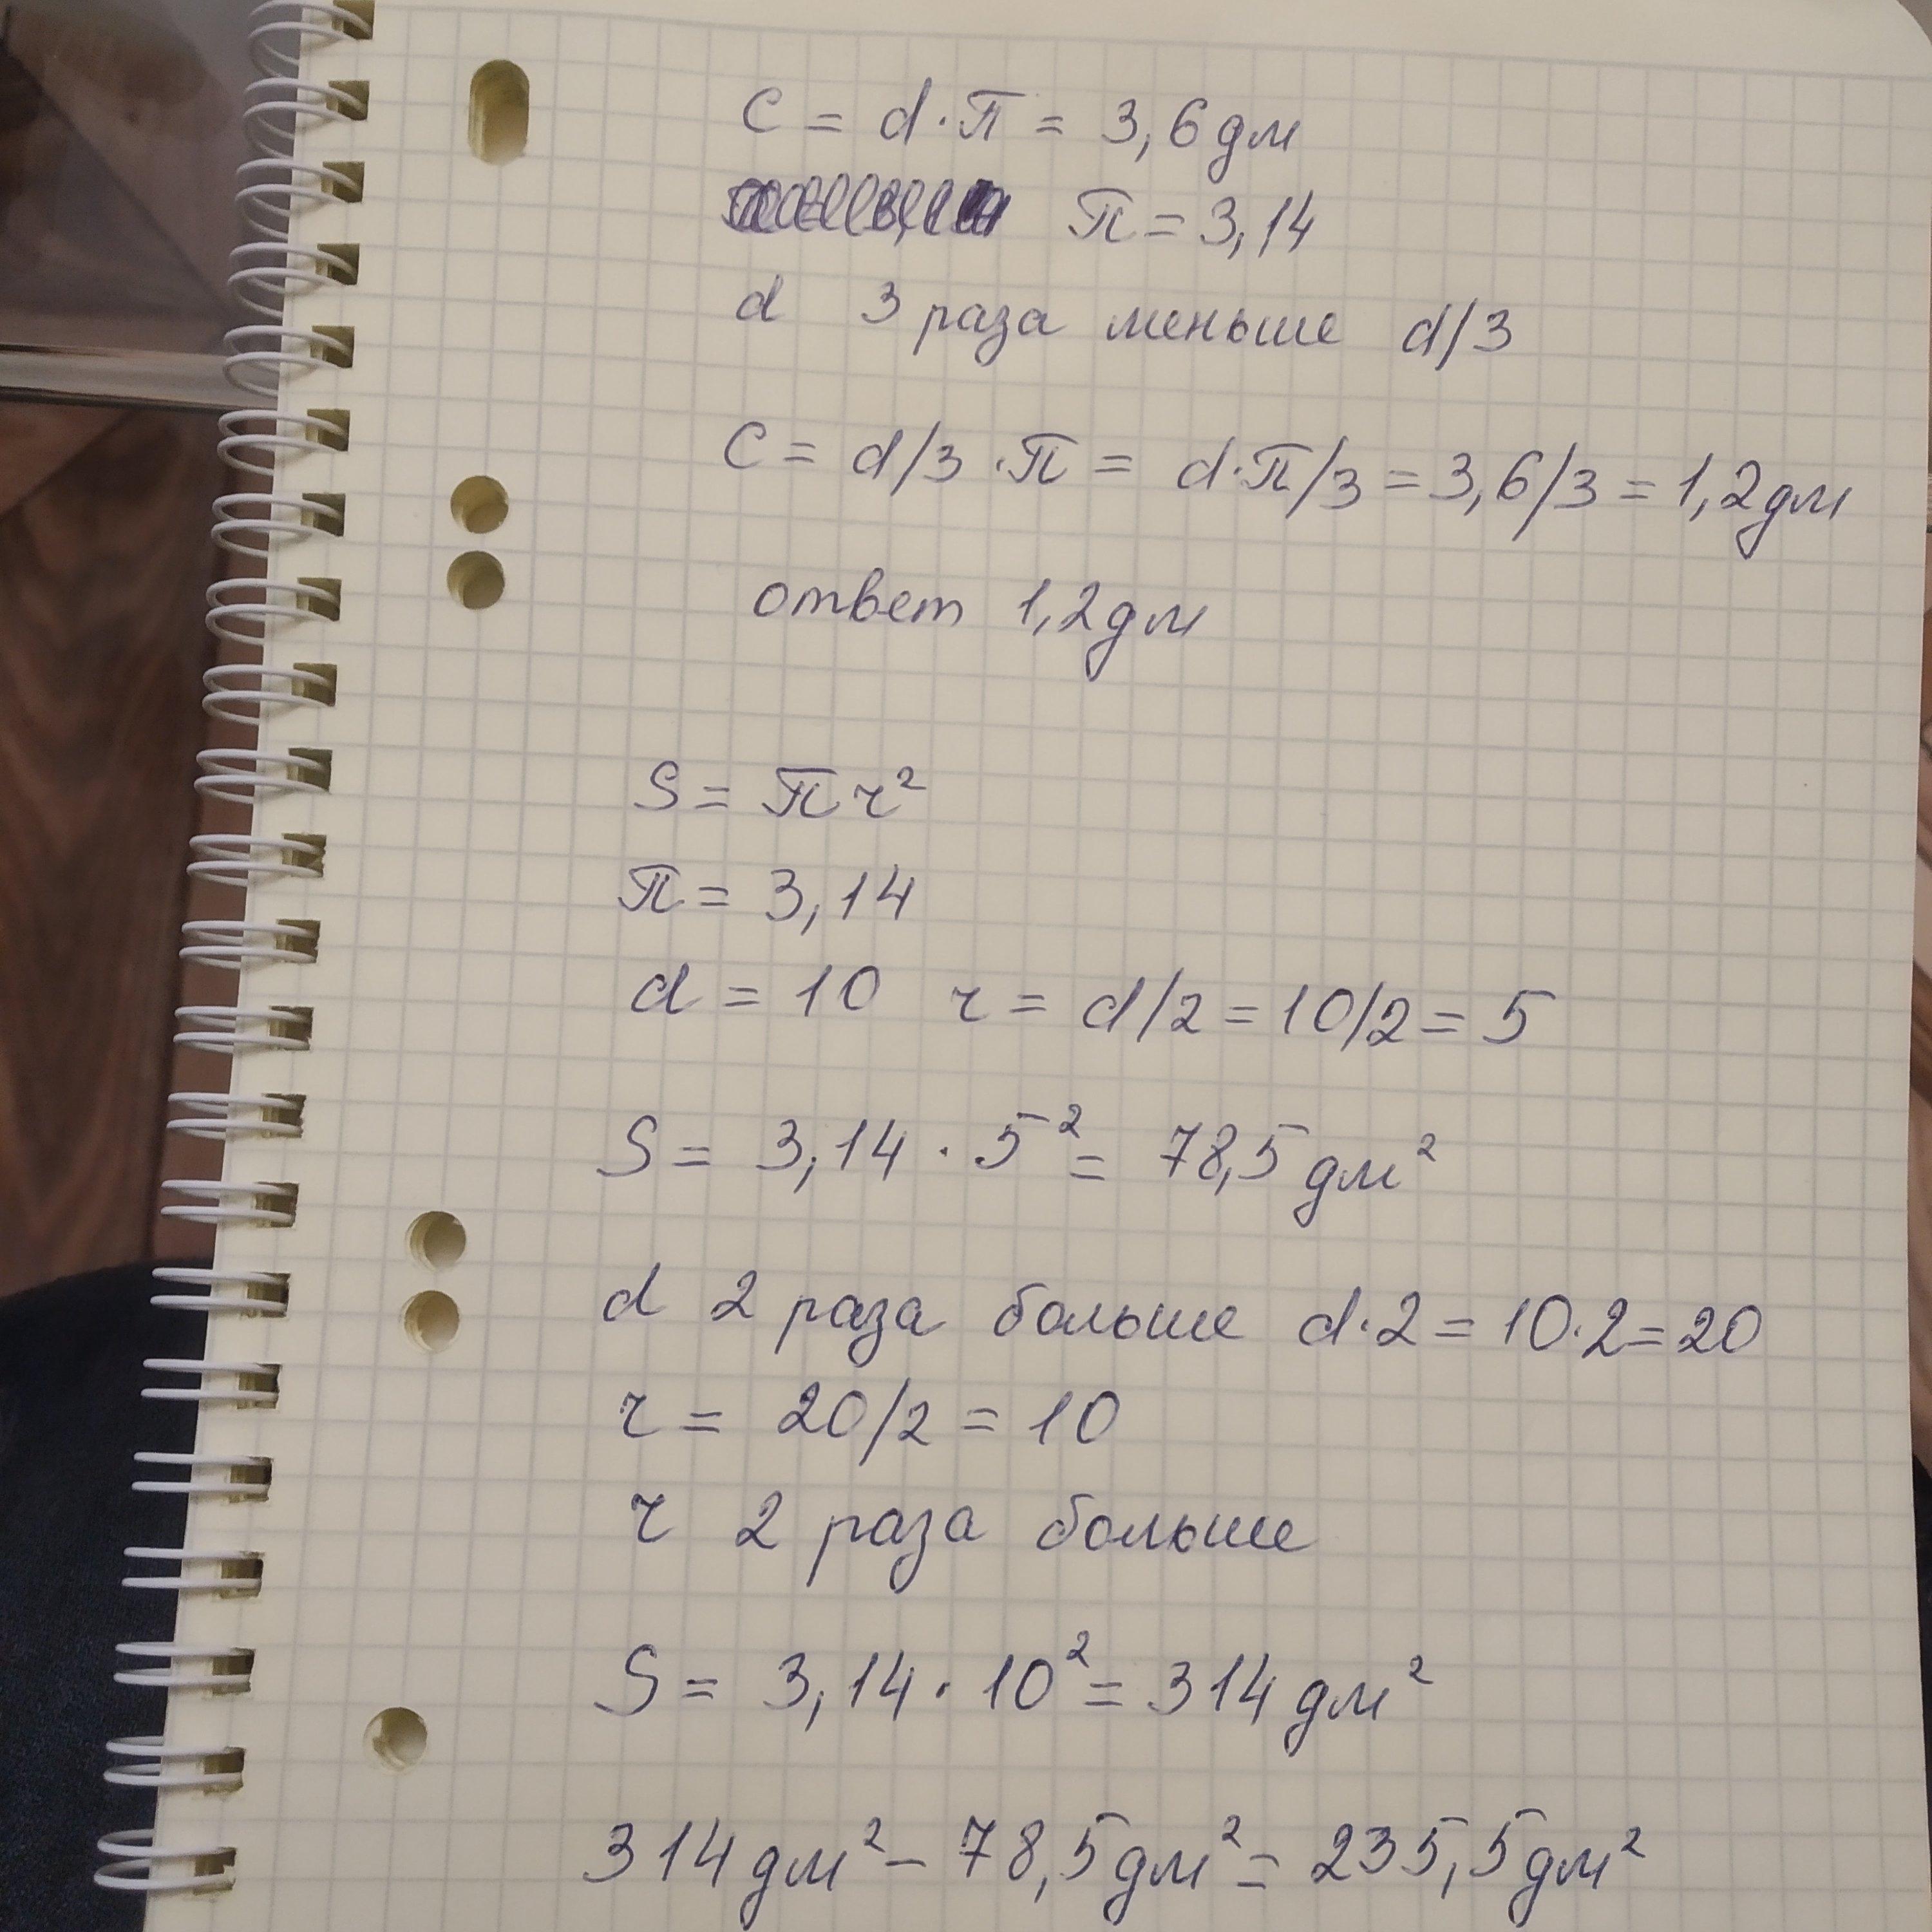 C = d·π = 3,6 дм
π = 3,14
d 3 раза меньше d/3
C = d/3 ·π = d·π/3 = 3,6/3 = 1,2 дм
ответ 1,2 дм
S = π r²
π = 3,14
d = 10 r = d/2 = 10/2 = 5
S = 3,14 · 5² = 78,5 дм²
d 2 раза больше d·2 = 10·2 = 20
r = 20/2 = 10
r 2 раза больше
S = 3,14 · 10² = 314 дм²
314 дм² – 78,5 дм² = 235,5 дм²